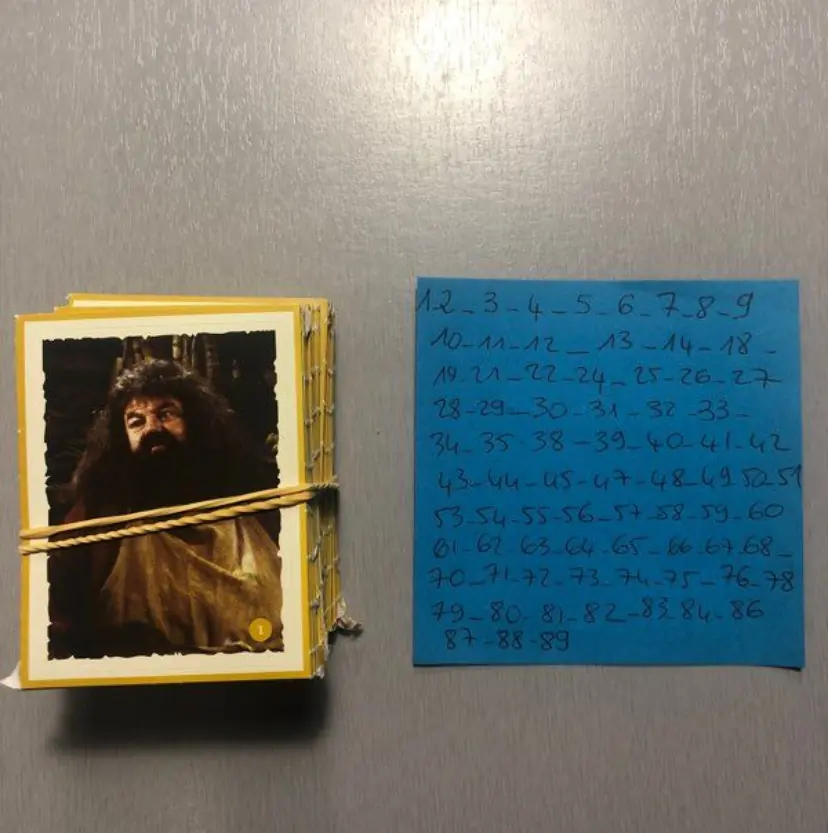 1
12 - 3 - 4 - 5 - 6 - 7 - 8 - 9
10 - 11 - 12 - 13 - 14 - 18 -
19 - 21 - 22 - 24 - 25 - 26 - 27
28 - 29 - 30 - 31 - 32 - 33 -
34 - 35 - 38 - 39 - 40 - 41 - 42
43 - 44 - 45 - 47 - 48 - 49 50 - 51
53 - 54 - 55 - 56 - 57 - 58 - 59 - 60
61 - 62 - 63 - 64 - 65 - 66 - 67 - 68 -
70 - 71 - 72 - 73 - 74 - 75 - 76 - 78
79 - 80 - 81 - 82 - 83 - 84 - 86
87 - 88 - 89